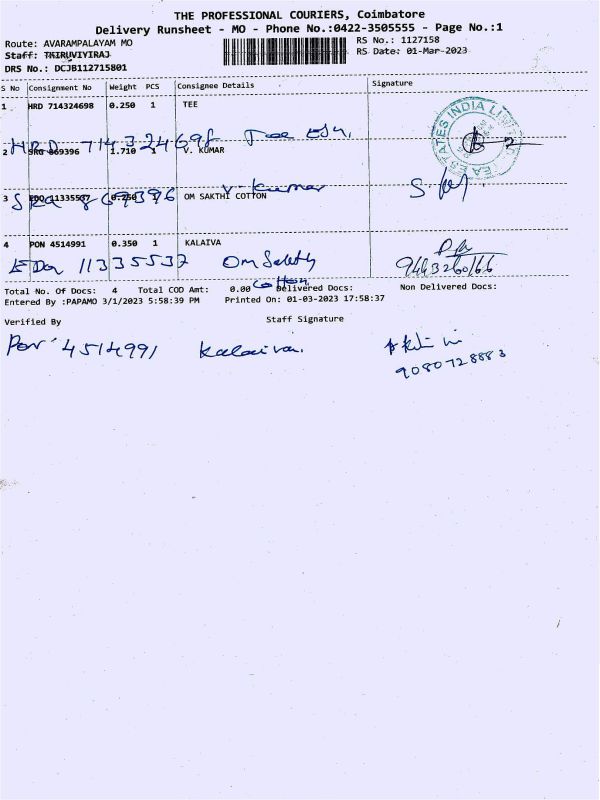 THE PROFESSIONAL COURIERS, Coimbatore
Delivery Runsheet - MO - Phone No.:0422-3505555 - Page No.:1
Route: AVARAMPALAYAM MO
RS No.: 1127158
Staff: THIRUVIYIRAJ
RS Date: 01-Mar-2023
DRS No.: DCJB112715801
S No Consignment No Weight PCS Consignee Details Signature
1 HRD 714324698 0.250 1 TEE
HRD 714324698 Tee
2 SRG 869396 1.710 1 V. KUMAR
3 EDO 11335537 0.250 1 OM SAKTHI COTTON
869396 V. Kumar
4 PON 4514991 0.350 1 KALAIVA
11335537 Om Sakthi
Cotton
9443260166
Total No. Of Docs: 4 Total COD Amt: 0.00 Delivered Docs: Non Delivered Docs:
Entered By :PAPAMO 3/1/2023 5:58:39 PM Printed On: 01-03-2023 17:58:37
Verified By Staff Signature
Pon 4514991 Kalaiva.
9080728883